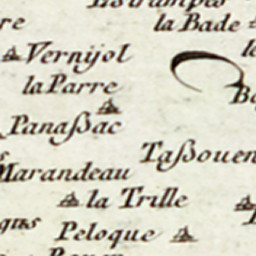 la Bade
Vernijol
la Parre
Panaßac
Taßouen
Marandeau
la Trille
Peloque